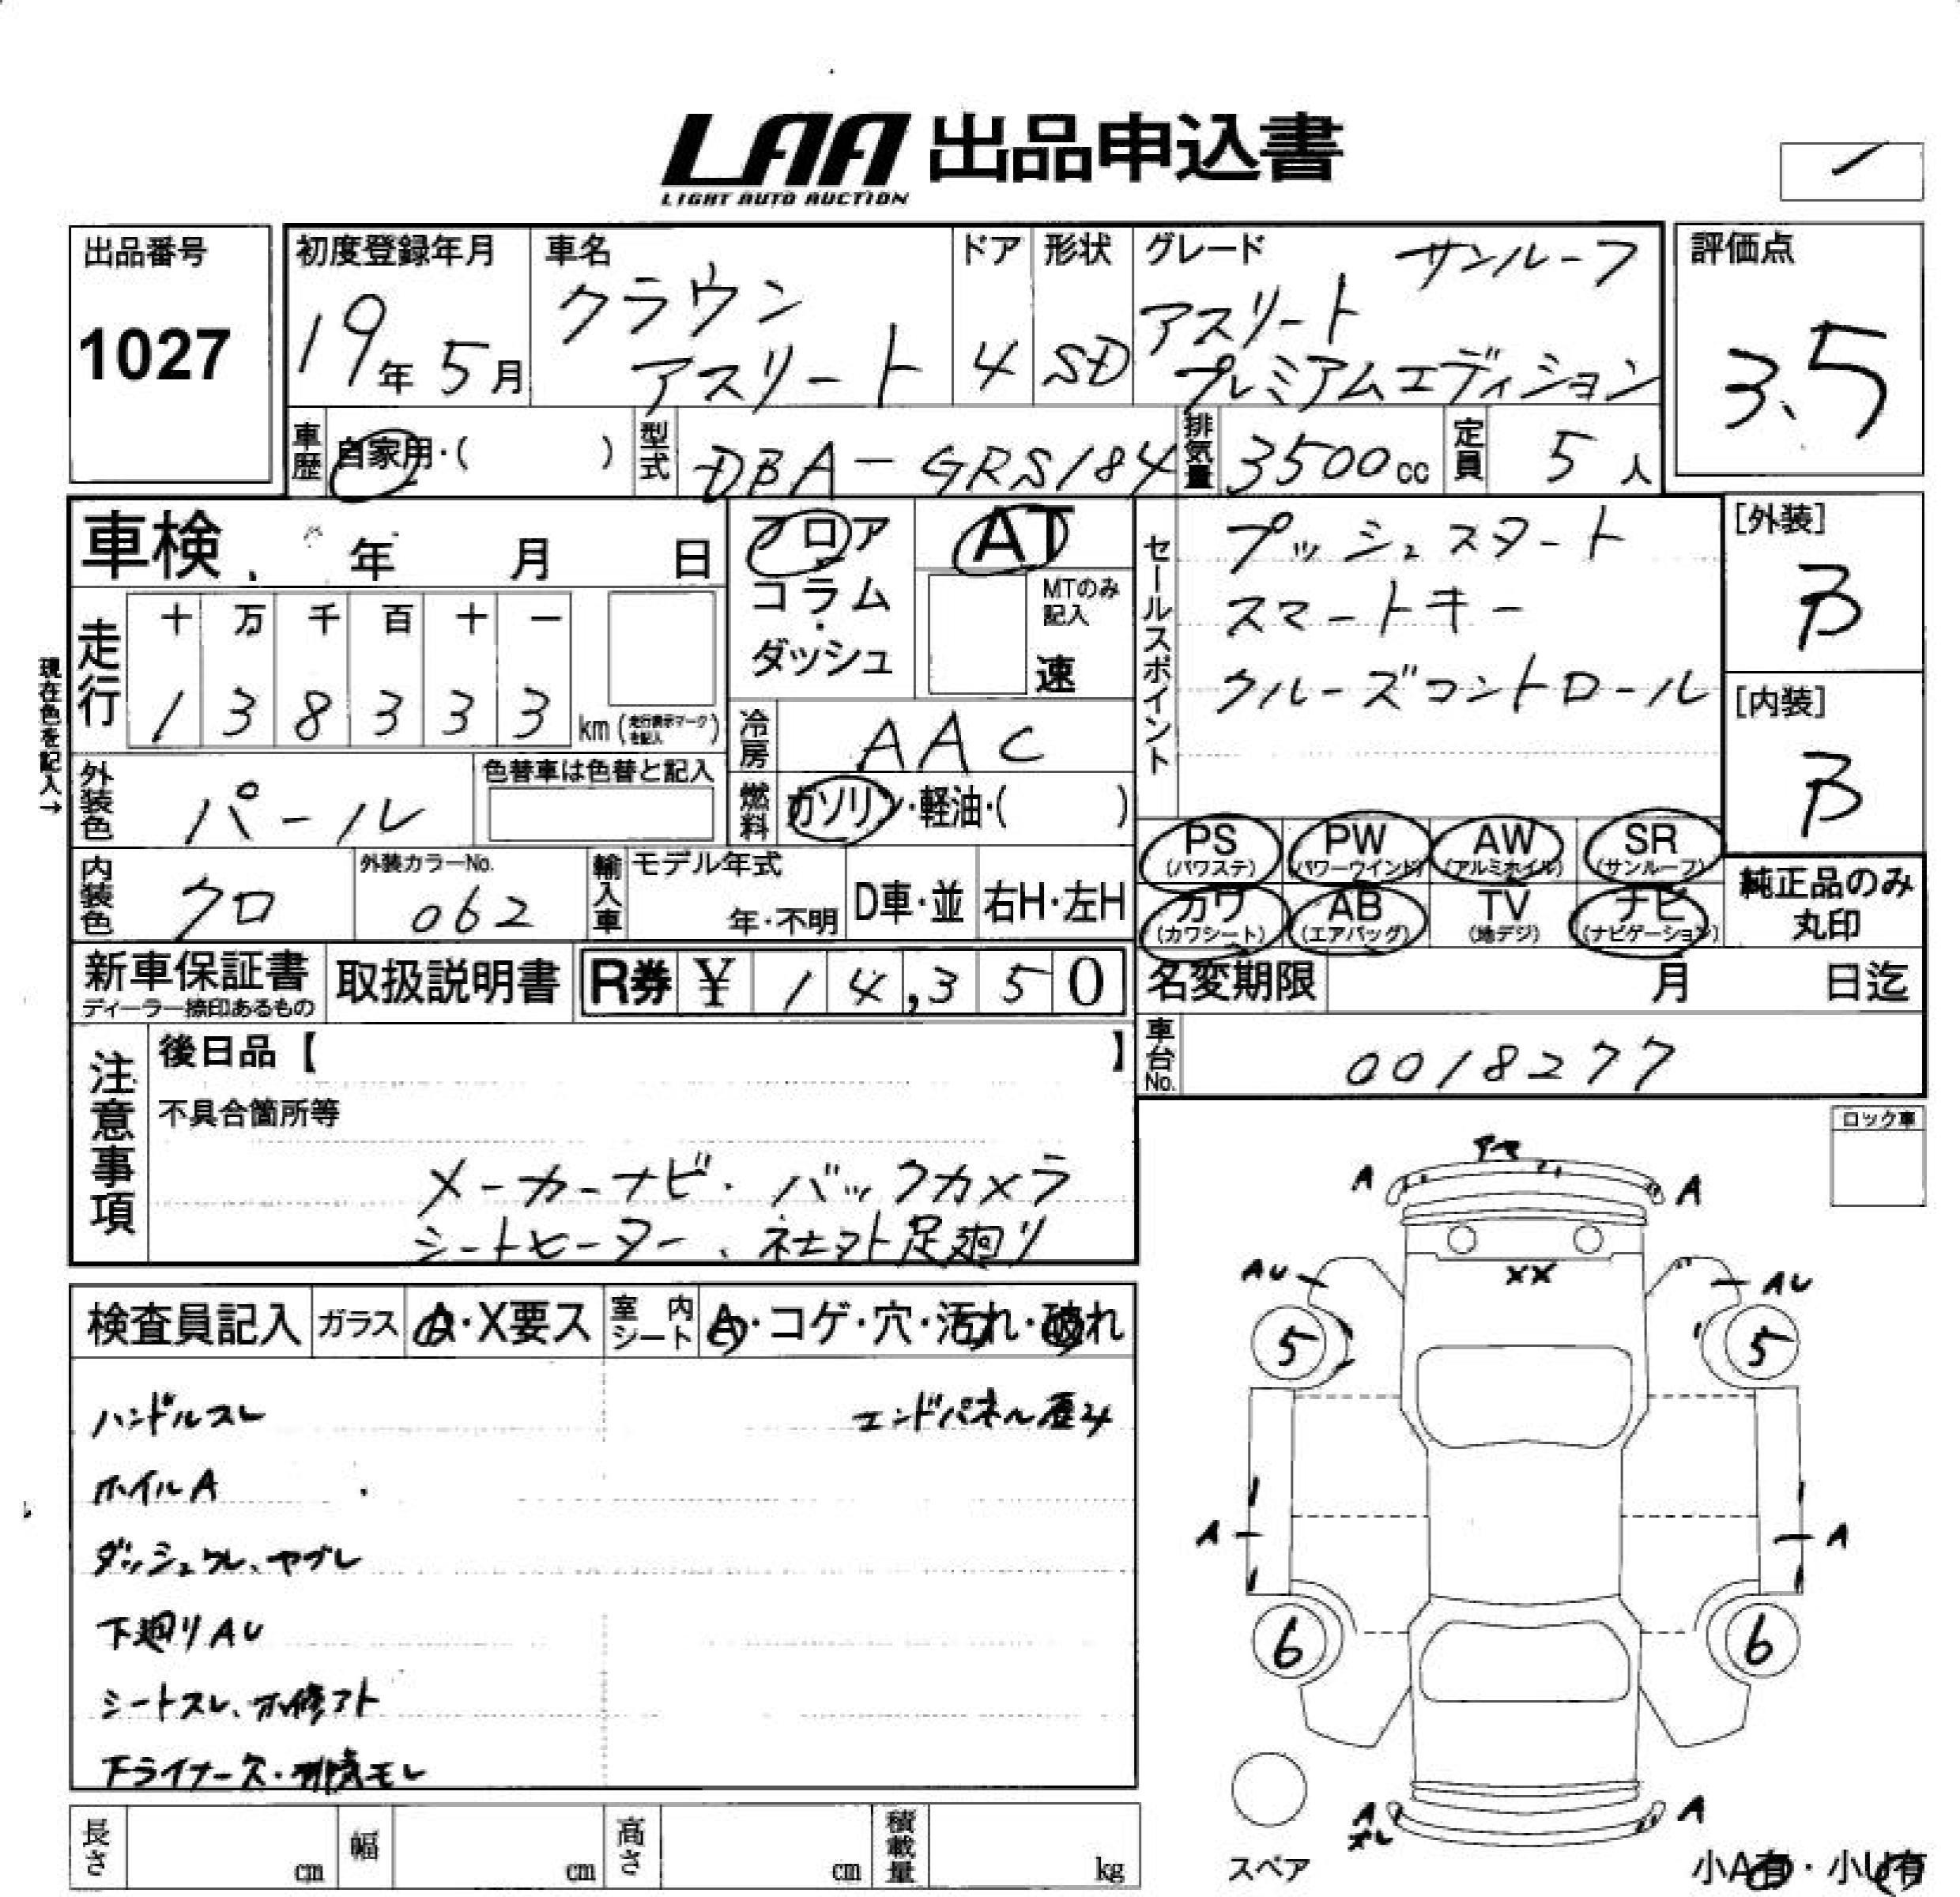 LAA 出品申込書
LIGHT AUTO AUCTION
出品番号
1027
初度登録年月
19年 5月
車名
クラウン
アスリート
ドア
4
形状
SD
グレード
サンルーフ
アスリート
プレミアムエディション
評価点
3.5
車歴
自家用・( )
型式
DBA-GRS184
排気量
3500cc
定員
5人
車検 年 月 日
現在色を記入→
走行
十 万 千 百 十 一
1 3 8 3 3 3
km (走行表示マークを記入)
フロア
コラム
ダッシュ
AT
MTのみ
記入
速
冷房
AAC
燃料
ガソリン・軽油・( )
外装色
パール
色替車は色替と記入
内装色
クロ
外装カラーNo.
062
輸入車
モデル年式
年・不明
D車・並
右H・左H
セールスポイント
プッシュスタート
スマートキー
クルーズコントロール
[外装]
B
[内装]
B
PS
(パワステ)
PW
(パワーウインド)
AW
(アルミホイル)
SR
(サンルーフ)
カワ
(カワシート)
AB
(エアバッグ)
TV
(地デジ)
ナビ
(ナビゲーション)
純正品のみ
丸印
新車保証書
ディーラー捺印あるもの
取扱説明書
R券 ¥ 14,350
名変期限 月 日迄
車台No.
0018277
注意事項
後日品【 】
不具合箇所等
メーカーナビ・バックカメラ
シートヒーター、ネセマト足廻り
ロック車
検査員記入
ガラス
A・X要ス
室内
シート
A・コゲ・穴・汚れ・破れ
ハンドルスレ
エンドパネル歪み
ホイルA
ダッシュワレ、ヤブレ
下廻りAU
シートスレ、
下ライナー欠・排気モレ
A
A
AU
XX
AU
5
5
A
A
6
6
A
A
スペア
小A有・小U有
長さ cm
幅 cm
高さ cm
積載量 kg